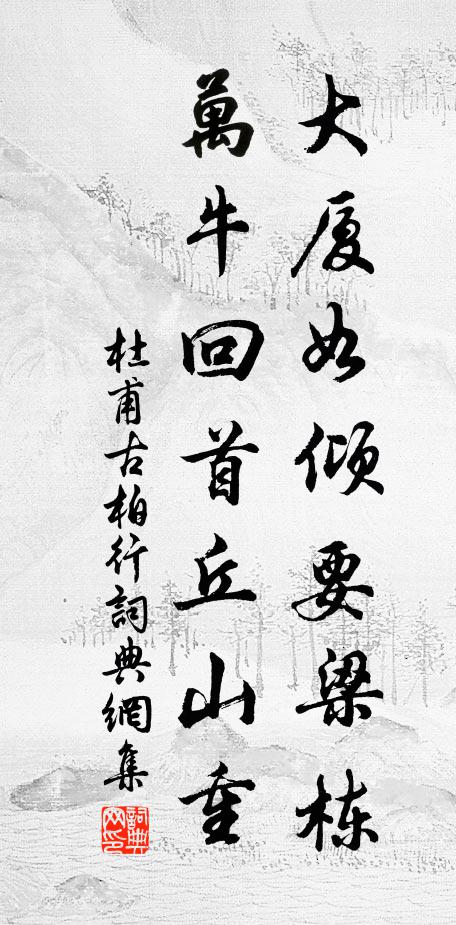 大厦如倾要梁栋
萬牛回首丘山重
杜甫古柏行詞典網集
詞典网印